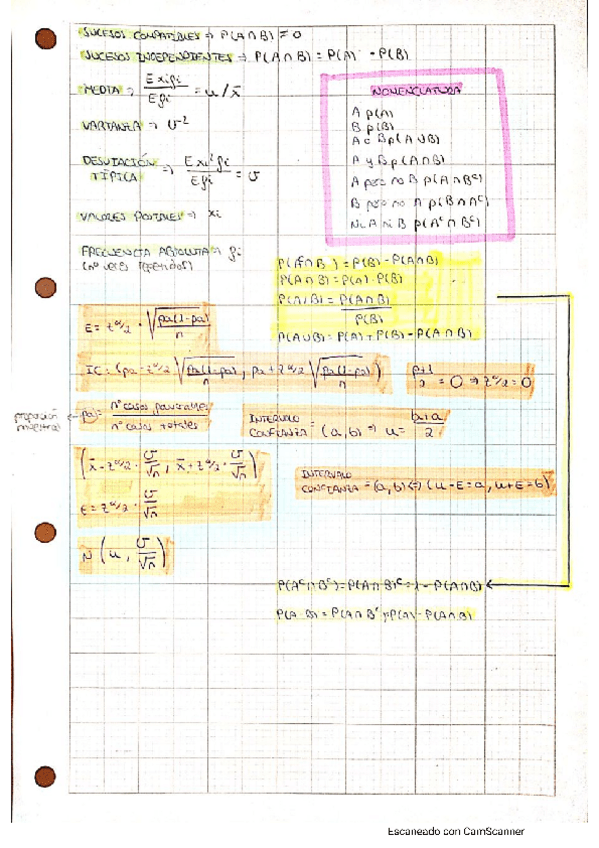 SUCESOS COMPATIBLES → P(A∩B) ≠ 0
SUCESOS INDEPENDIENTES → P(A∩B) = P(A) · P(B)
MEDIA → Σxifi / Σfi = u / x̄
VARIANZA → σ²
DESVIACIÓN TÍPICA → Σxi²fi / Σfi = σ
VALORES POSIBLES → xi
FRECUENCIA ABSOLUTA → fi
(nº veces repetidos)
NOMENCLATURA
A p(A)
B p(B)
A o B p(A∪B)
A y B p(A∩B)
A pero no B p(A∩Bᶜ)
B pero no A p(B∩Aᶜ)
Ni A ni B p(Aᶜ∩Bᶜ)
P(Aᶜ∩B) = P(B) - P(A∩B)
P(A∩B) = P(A) · P(B)
P(A/B) = P(A∩B) / P(B)
P(A∪B) = P(A) + P(B) - P(A∩B)
E = zα/2 · √(pa(1-pa) / n)
IC: (pa - zα/2 √(pa(1-pa) / n), pa + zα/2 √(pa(1-pa) / n))
= 0 ⇒ zα/2 = 0
proporción muestral ← pa = nº casos favorables / nº casos totales
INTERVALO CONFIANZA (a,b) ⇒ u = b+a / 2
(x̄ - zα/2 · σ/√n, x̄ + zα/2 · σ/√n)
INTERVALO CONFIANZA = (a,b) ⇔ (u-E=a, u+E=b)
E = zα/2 · σ/√n
N (u, σ/√n)
P(Aᶜ∩Bᶜ) = P(A∩B)ᶜ = 1 - P(A∩B)
P(A-B) = P(A∩Bᶜ) = P(A) - P(A∩B)
Escaneado con CamScanner